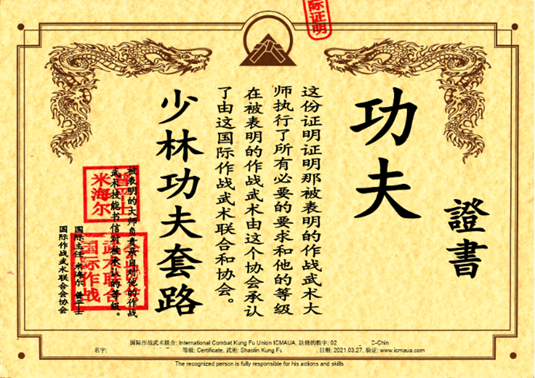 国际证明
功夫
證書
这份证明证明那被表明的作战武术大
师执行了所有必要的要求和他的等级
在被表明的作战武术由这个协会承认
了由这国际作战武术联合和协会。
少林功夫套路
被表明的大师负责承担对他的作战
武术技能书信承认的等级。
国际主任 米海尔
国际作战武术联合会协会
米海尔
武术联合
国际作战
国际作战武术联合: International Combat Kung Fu Union ICMAUA, 註冊的数字: 02 C-Chin
名字: 等级: Certificate, 武术: Shaolin Kung Fu 日期: 2021.03.27. 验证: www.icmaua.com
The recognized person is fully responsible for his actions and skills